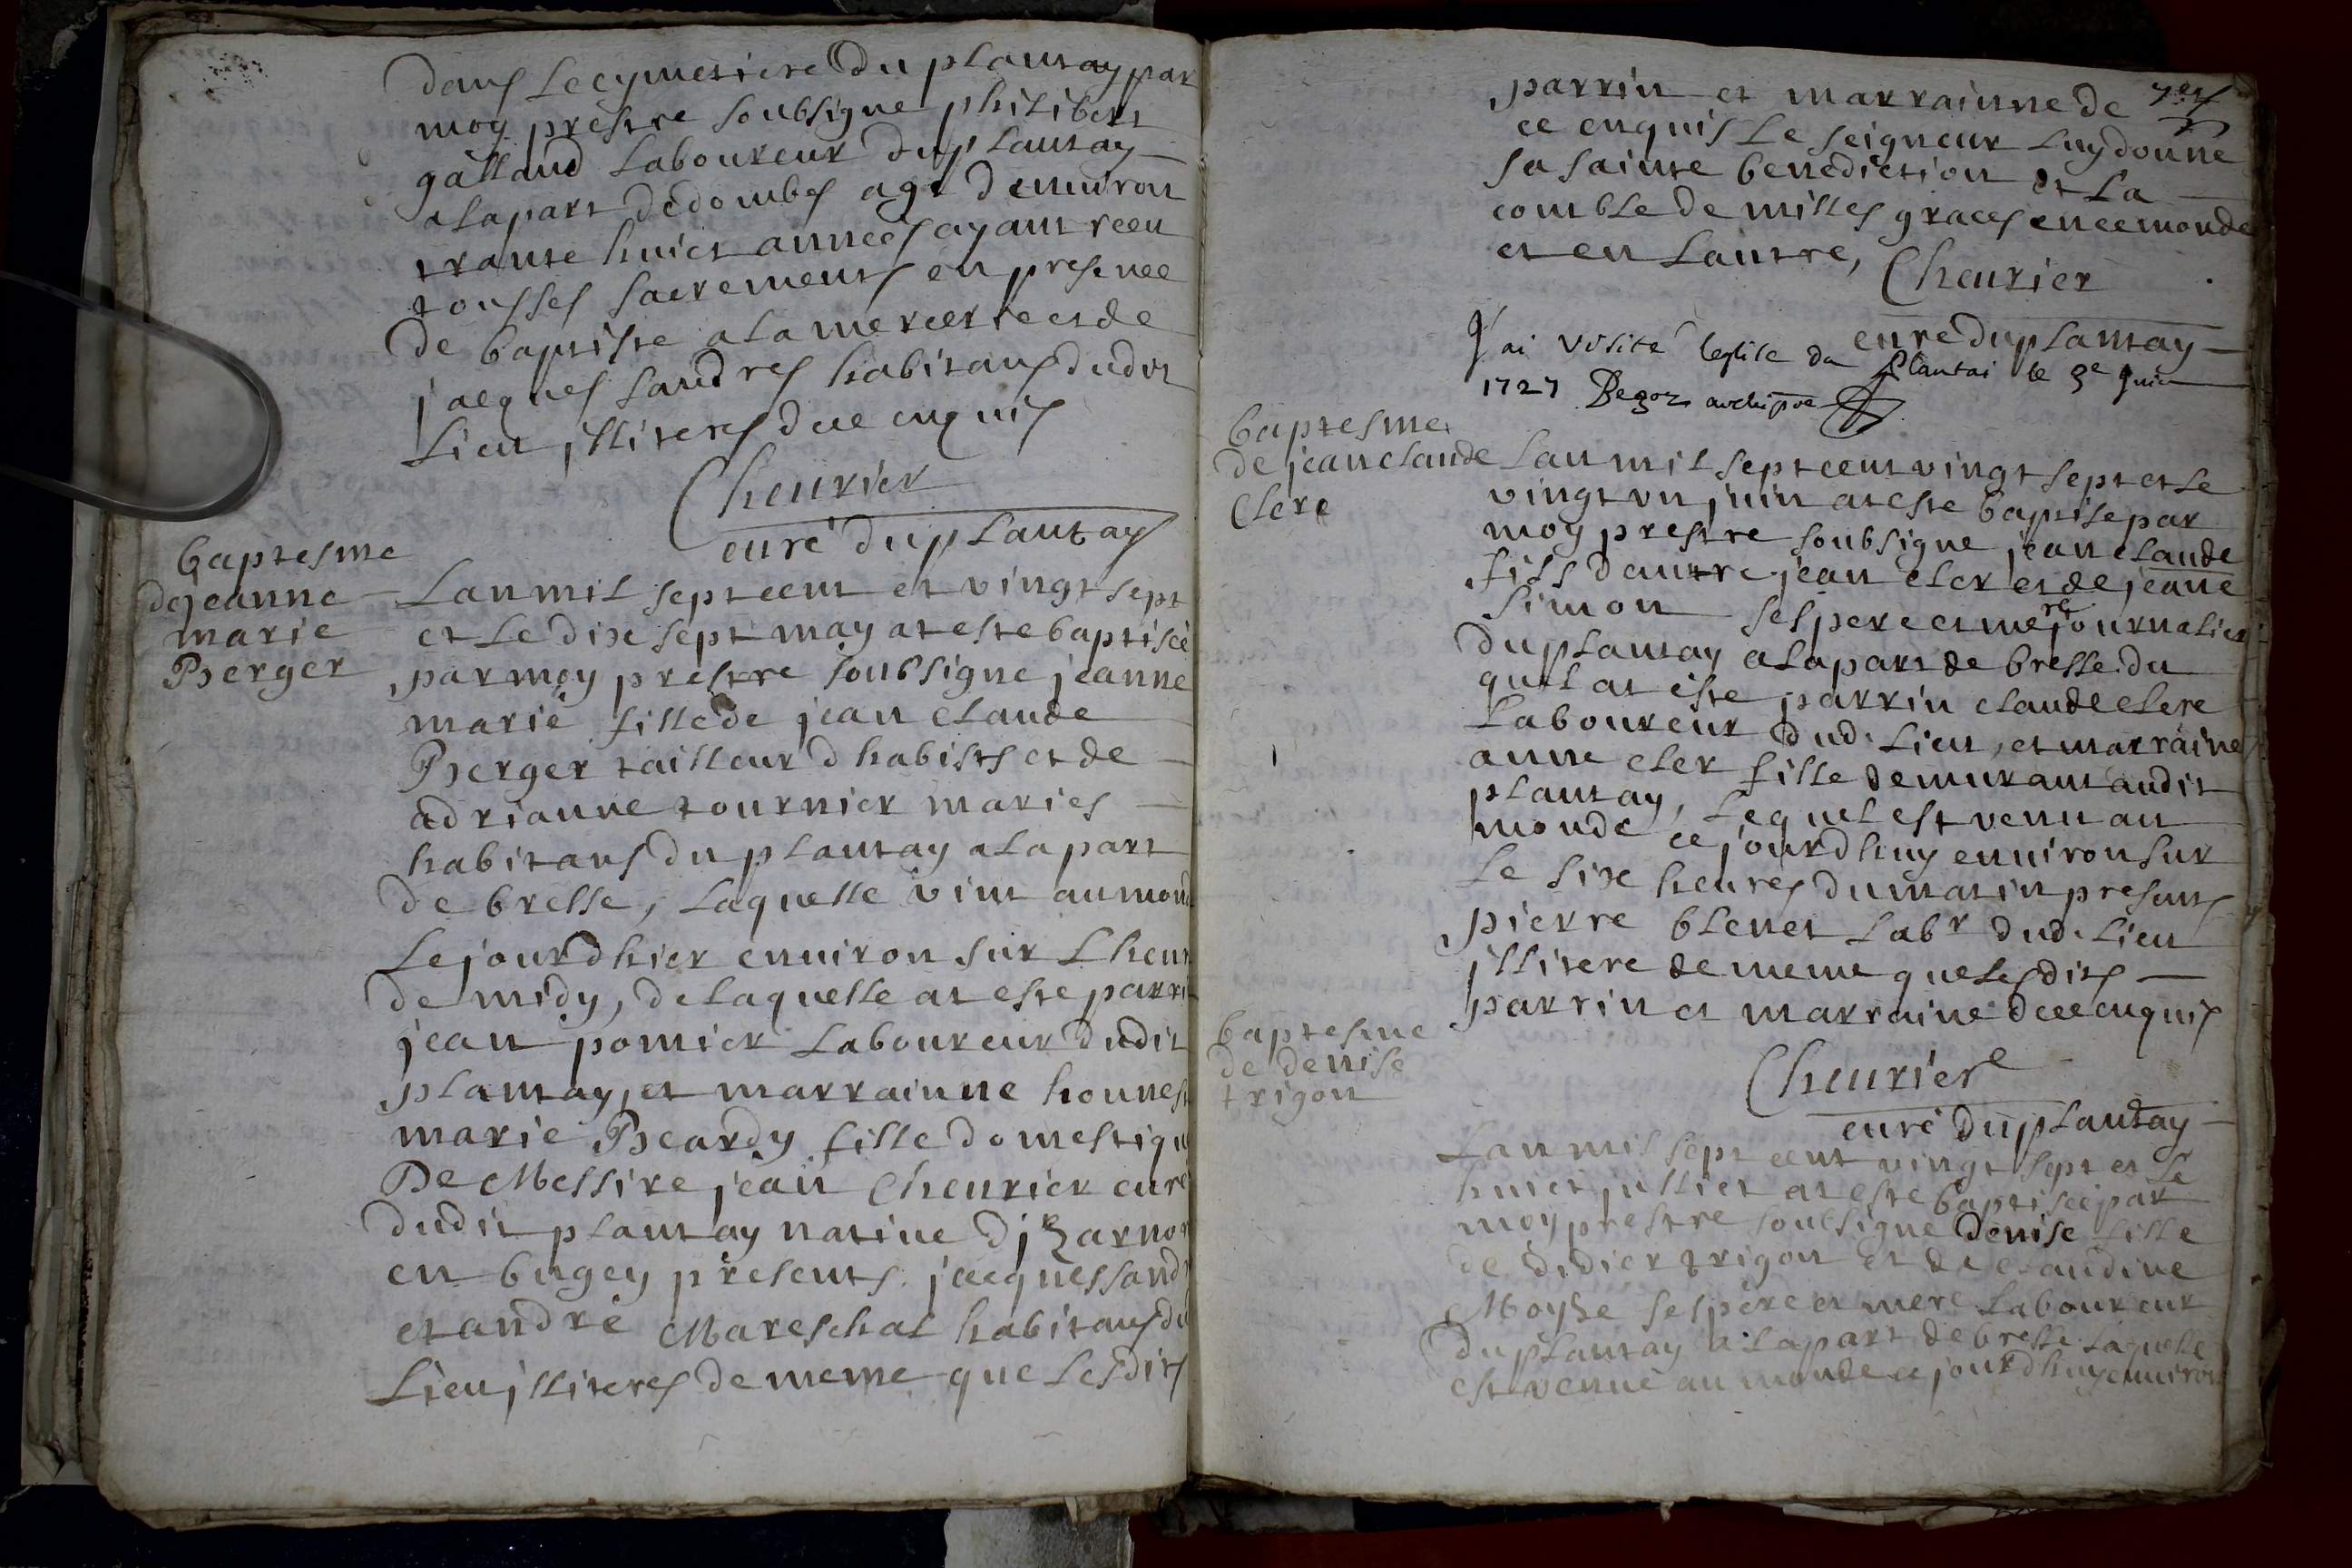 dans le cymetiere du plantay par
moy prestre soubsigne philibert
galland laboureur du plantay
a la part de dombes age denuiron
trante huict annees ayant receu
tousses sacrements en presence
de baptiste a la mercerie et de
jacques sandres habitans dudit
lieu jlliteres de ce enquis
Cheurier
curé du plantay
baptesme
de jeanne
marie
Berger
Lan mil sept cent et vingt sept
et le dixe sept may at este baptiseé
par moy prestre soubsigne jeanne
marie fille de jean claude
Berger tailleur dhabists et de
adrianne tournier maries
habitans du plantay a la part
de bresse, laquelle vint au mond
le jourdhier enuiron sur Lheur
de midy, de laquelle at este parri
jean pomier laboureur dudit
plantay, et marrainne honnest
marie Beardy fille domestiqu
De Messire jean Cheurier curé
dudit plantay natiue dj Zarnor
en bugey presents jacques sand
et andré Mareschal habitans du
lieu jlliteres de meme que lesdits
parrin et marrainne de
ce enquis le seigneur luy donne
sa sainte benediction et la
comble de milles graces en ce monde
et en lautre, Cheurier
curé du plantay
J'ai visité leglise du Plantai le 5e juin
1727 Begoz archipre
baptesme
de jean claude
Clerc
Lan mil sept cent vingt sept et le
vingt vn juin at este baptise par
moy prestre soubsigne jean claude
fils dautre jean cler et de jeane
Simon ses pere et mere journalier
du plantay a la part de bresse du
quel at este parrin claude clerc
laboureur dud. lieu, et marraine
anne cler fille demurant audit
plantay, lequel est venu au
monde ce jourdhuy enuiron sur
le sixe heures du matin presents
pierre blenet labr dud. lieu
jllitere de meme que lesdits
parrin et marraine de ce enquis
Cheurier
curé du plantay
baptesme
de denise
trigon
Lan mil sept cent vingt sept et le
huict juilliet at este baptiseé par
moy prestre soubsigne denise fille
de didier trigon et de claudine
Moyze ses pere et mere laboureur
du plantay a la part de bresse laquelle
est venue au monde ce jourdhuy enuiron